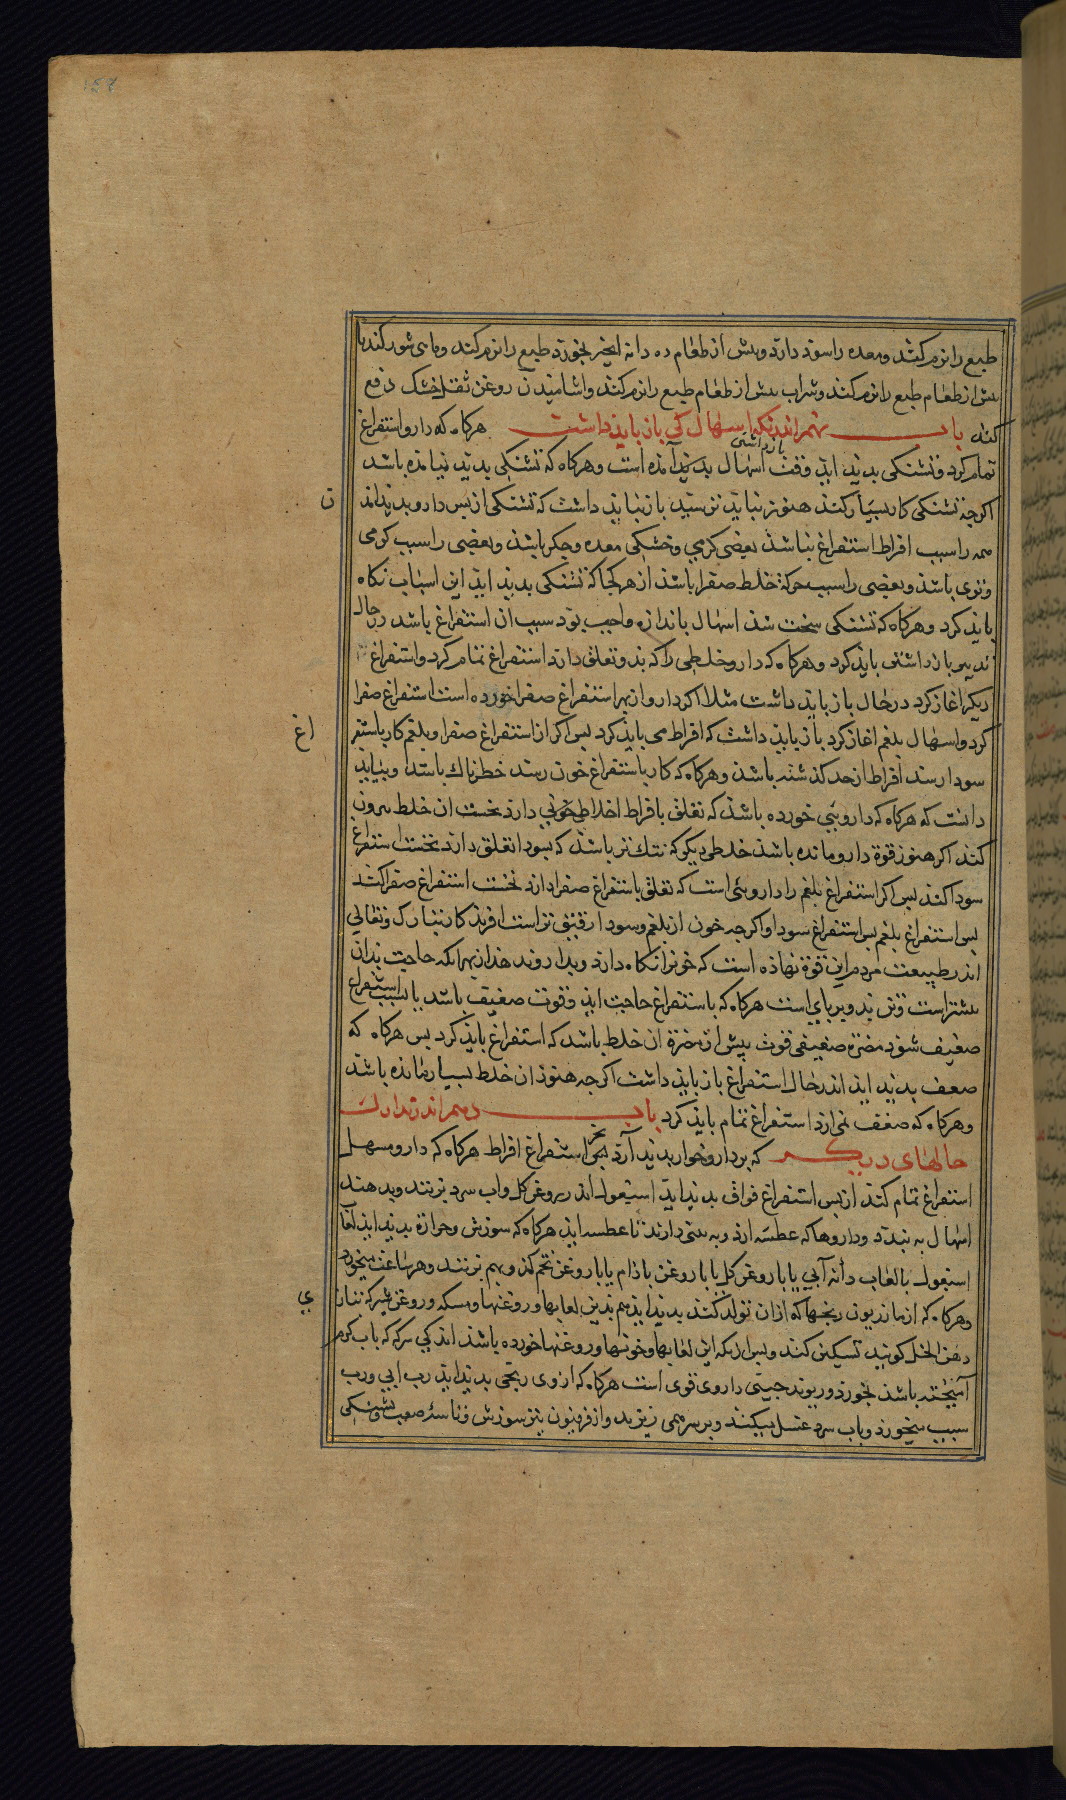 طبع را نرم کند و معده را سود دارد و پیش از طعام ده دانه انجیر بخورد طبع را نرم کند و ماهی شور کند تا
پیش از طعام طبع را نرم کند و شراب پیش از طعام طبع را نرم کند و اشامیدن روغن ثفل خشک دفع
کند باب نهم اندر انکه اسهال کی باز باید داشت هرکاه که دارو استفراغ
تمام کرد و تشنکی بدید اید وقت باز داشتن اسهال بدید آمده است و هرکاه که تشنکی بدید نیامده باشد
اکرچه تشنکی کار بسیار کند هنوز نباید ترسید باز نباید داشت که تشنکی از پس دارو بدید اند
همه را سبب افراط استفراغ نباشد بعضی کرمی و خشکی معده و جکر باشد و بعضی را سبب کرمی
و تری باشد و بعضی را سبب حرکة خلط صفرا باشد از هر کجا که تشنکی بدید اید این اسباب نکاه
باید کرد و هرکاه که تشنکی سخت شد اسهال باندازه واجب بود سبب ان استفراغ باشد در حال
تدبیر باز داشتن باید کرد و هرکاه که دارو خلطی را که بدو تعلق دارد استفراغ تمام کرد و استفراغ
دیکر اغاز کرد در حال باز باید داشت مثلا اکر دارو از بهر استفراغ صفرا خورده است استفراغ صفرا
کرد و اسهال بلغم اغاز کرد باز باید داشت که افراط می باید کرد پس اکر از استفراغ صفرا و بلغم کار باستفر
اغ
سودا رسد افراط از حد کذشته باشد و هرکاه که کار باستفراغ خون رسد خطرناک باشد و بباید
دانست که هرکاه که داروئی خورده باشد که تعلق بافراط اخلاط خونی دارد نخست ان خلط بیرون
کند اکر هنوز قوة دارو مانده باشد خلطی دیکر که تنک تر باشد که بسودا تعلق دارد نخست استفراغ
سودا کند پس اکر استفراغ بلغم را داروئی است که تعلق باستفراغ صفرا دارد نخست استفراغ صفرا کند
پس استفراغ بلغم پس استفراغ سودا و اکرچه خون از بلغم و سودا رقیق تر است افریدکار تبارک و تعالی
اندر طبیعت مردم این قوة نهاده است که خونرا نکاه دارد و بدارو ندهد از بهر انکه حاجت بدان
بیشتر است و هرکاه که باستفراغ حاجت اید و قوت ضعیف باشد یا بسبب استفراغ
ضعیف شود مضرة ضعیفی قوت بیش از مضرة ان خلط باشد که استفراغ باید کرد پس هرکاه که
ضعف بدید اید اندر حال استفراغ باز باید داشت اکرچه هنوز ان خلط بسیار مانده باشد
و هرکاه که ضعف نمی ارد استفراغ تمام باید کرد باب دهم اندر تدارک
حالهای دیکر که بر دارو خوار بدید آرد بجز استفراغ افراط هرکاه که دارو مسهل
استفراغ تمام کند از پس استفراغ فواق بدید اید اسپغول اندر روغن کل و اب سرد بزنند و بدهند
اسهال به بندد و داروها که عطسه ارد به بینی دارند تا عطسه اید هرکاه که سوزش و حرارة بدید اید لعاب
اسپغول با لعاب دانه آبی یا با روغن کل یا با روغن باذام یا با روغن تخم کدو بهم بزنند و هر ساعت میخورد
و هرکاه که از مازریون رنجها که از ان تولد کند بدید اید هم بدین لعابها و روغنها و مسکه و روغن شیر که تازی
دهن الخل کویند تسکین کند و پس از انکه این لعابها و روغنها خورده باشد اندکی سرکه که باب کرم
آمیخته باشد بخورد و ریوند چینی داروی قوی است هرکاه که از وی رنجی بدید اید رب ابی و رب
سیب میخورد و باب سرد غسل میکند و بر سر همی ریزد و از فرفیون نیز سوزش و تاسه صعب و تشنکی